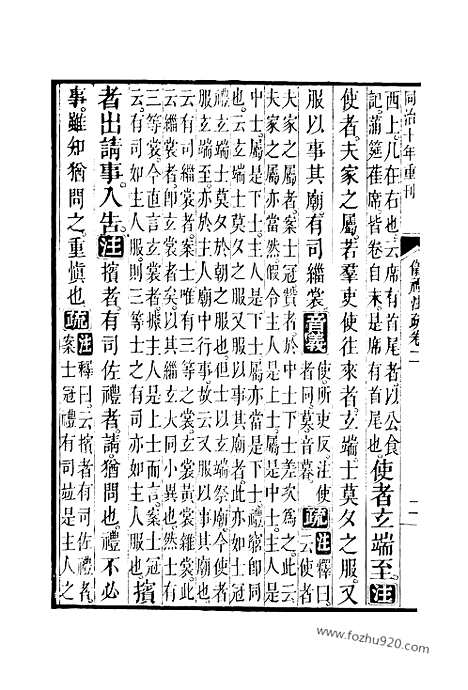 同治十年重刊
儀禮注疏卷二
二
西上几在右也云席有首尾者以公食
記蒲筵萑席皆卷自末是席有首尾也
使者玄端至注
使者夫家之屬若羣吏使往來者玄端士莫夕之服又
服以事其廟有司緇裳音義
使所吏反注使
者同莫音暮
疏注
釋曰
云使者
夫家之屬者案士冠贊者於中士下士差次為之此云
夫家之屬亦當然假令主人是上士屬是中士主人是
中士屬是下士主人是下士屬亦當是下士禮窮即同
也云玄端士莫夕之服又服以事其廟者此亦如士冠
禮玄端士莫夕於朝之服也但士以玄端祭廟今使者
服玄端至亦於主人廟中行事故云又服以事其廟也
云有司緇裳者案士唯有三等之裳玄裳黃裳雜裳此
云緇裳者即玄裳者矣以其緇玄大同小異也然士有
三等裳今直言玄裳者據主人是上士而言案士冠云
有司如主人服則三等士之有司亦如主人服也
擯
者出請事入告注擯者有司佐禮者請猶問也禮不必
事雖知猶問之重慎也疏注
釋曰云擯者有司佐禮者
案士冠禮有司竝是主人之
www.fozhu920.com